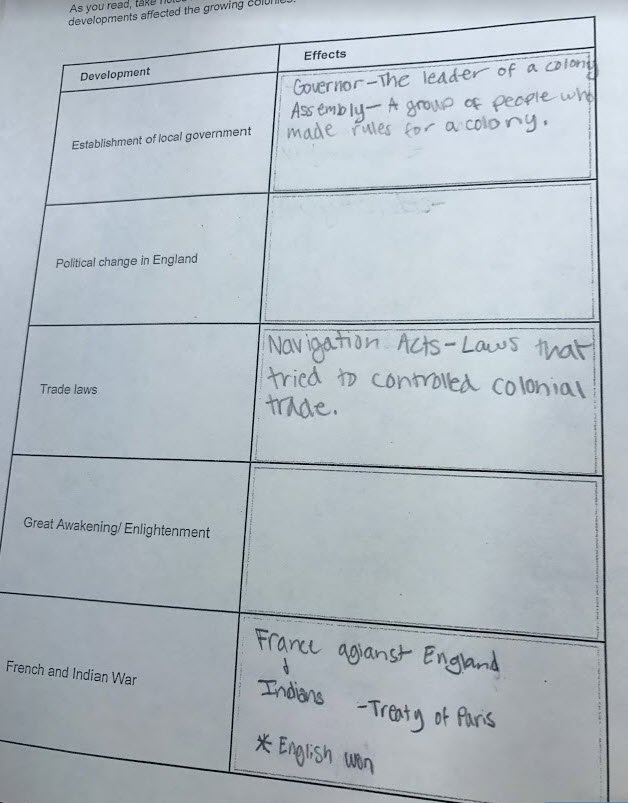 As you read, take
developments affected the growing colonies.
Development
Effects
Establishment of local government
Governor-The leader of a colony
Assembly- A group of people who
made rules for a colony.
Political change in England
Trade laws
Navigation Acts-Laws that
tried to controlled colonial
trade.
Great Awakening/ Enlightenment
French and Indian War
France agianst England
Indians -Treaty of Paris
* English won